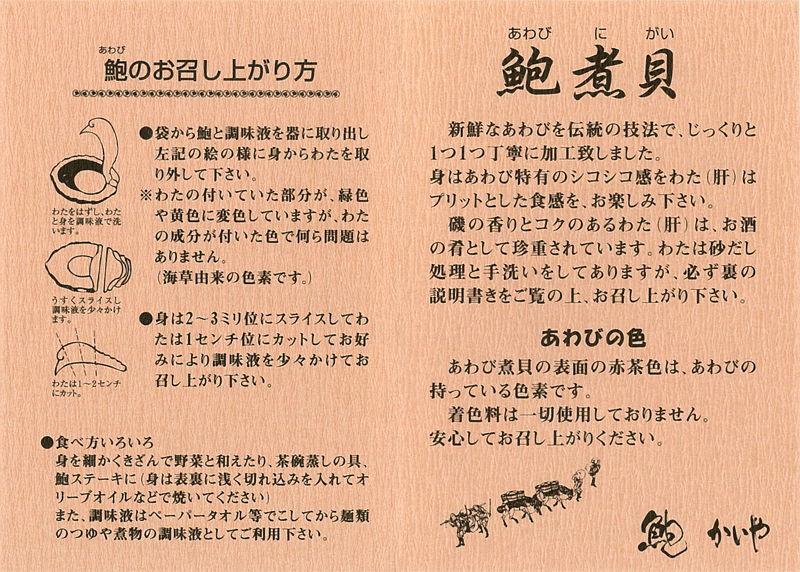 あわび
鮑のお召し上がり方
●袋から鮑と調味液を器に取り出し
左記の絵の様に身からわたを取
り外して下さい。
※わたの付いていた部分が、緑色
や黄色に変色していますが、わた
の成分が付いた色で何ら問題は
ありません。
(海草由来の色素です。)
わたをはずし、わた
と身を調味液で洗
います。
うすくスライスし
調味液を少々かけ
ます。
●身は2～3ミリ位にスライスしてわ
たは1センチ位にカットしてお好
みにより調味液を少々かけてお
召し上がり下さい。
わたは1～2センチ
にカット。
●食べ方いろいろ
身を細かくきざんで野菜と和えたり、茶碗蒸しの具、
鮑ステーキに(身は表裏に浅く切れ込みを入れてオ
リーブオイルなどで焼いてください)
また、調味液はペーパータオル等でこしてから麺類
のつゆや煮物の調味液としてご利用下さい。
あわび に がい
鮑煮貝
新鮮なあわびを伝統の技法で、じっくりと
1つ1つ丁寧に加工致しました。
身はあわび特有のシコシコ感をわた(肝)は
プリットとした食感を、お楽しみ下さい。
磯の香りとコクのあるわた(肝)は、お酒
の肴として珍重されています。わたは砂だし
処理と手洗いをしてありますが、必ず裏の
説明書きをご覧の上、お召し上がり下さい。
あわびの色
あわび煮貝の表面の赤茶色は、あわびの
持っている色素です。
着色料は一切使用しておりません。
安心してお召し上がりください。
鮑 かいや